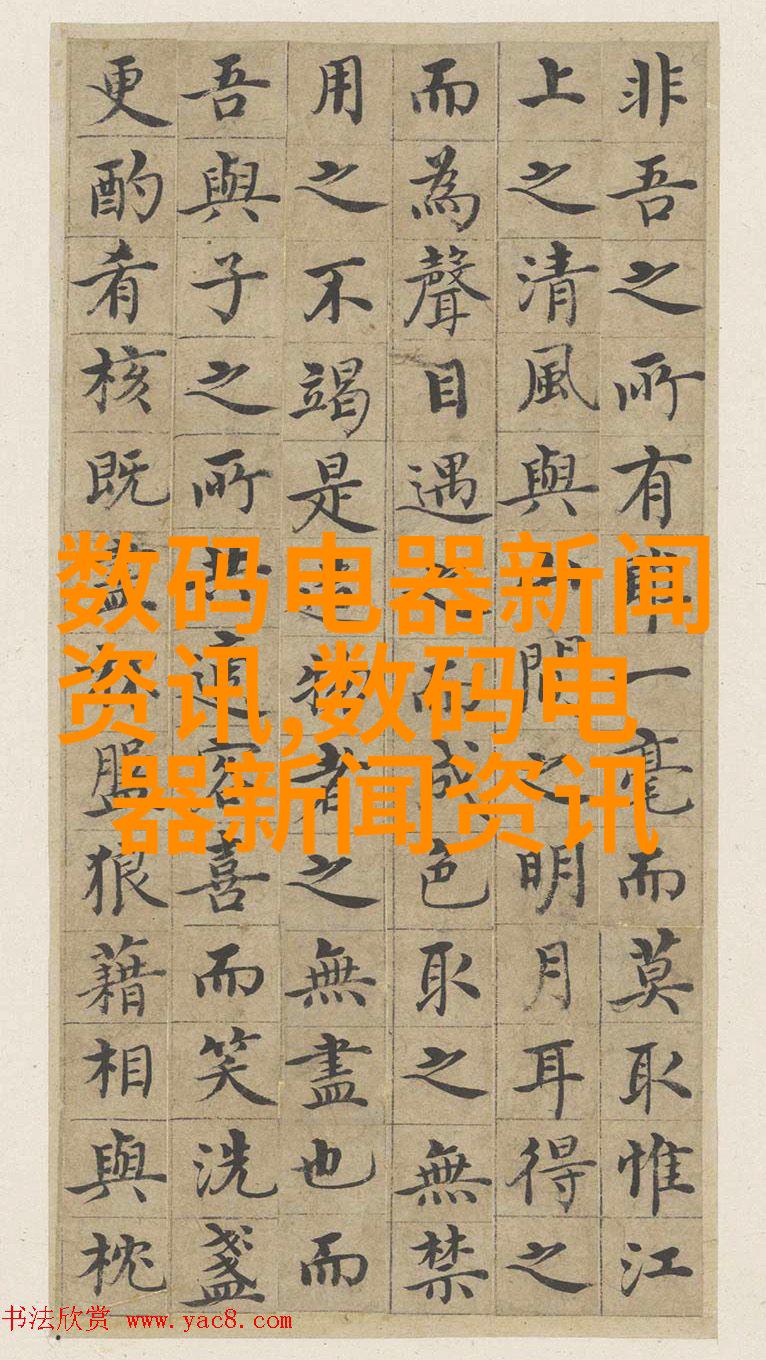 非吾之所有雖一毫而莫取惟江
上之清風與山間之明月耳得之
而為聲目遇之而成色取之無禁
用之不竭是造物者之無盡也而
吾與子之所共適客喜而笑洗盞
更酌肴核既盡杯盤狼藉相與枕
数码电器新闻
资讯,数码电
器新闻资讯
书法欣赏 www.yac8.com